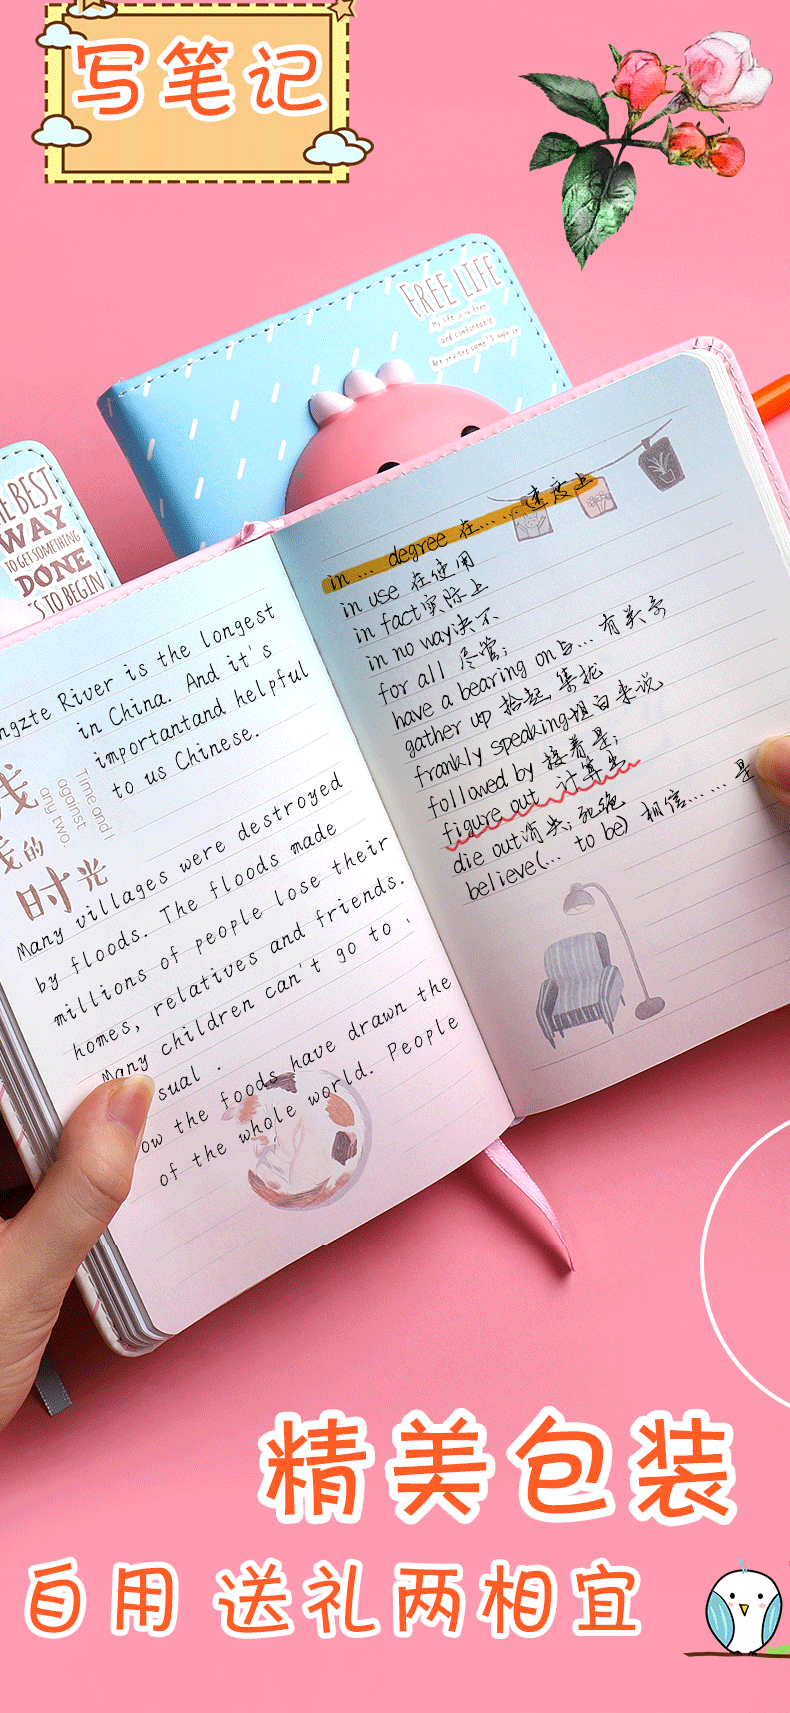 写笔记
FREE LIFE
My life is a free
and comfortable
Are you the same? I hope so
THE BEST
WAY
TO GET SOMETHING
DONE
IS TO BEGIN
ngzte River is the longest
in China. And it's
importantand helpful
to us Chinese.
Time and I
against
any two.
浅
浅的
时光
Many villages were destroyed
by floods. The floods made
millions of people lose their
homes, relatives and friends.
Many children can't go to
sual .
ow the foods have drawn the
of the whole world. People
in ... degree 在……速度上
in use 在使用
in fact 实际上
in no way 决不
for all 尽管;
have a bearing on 与…有关系
gather up 拾起 集拢
frankly speaking 坦白来说
followed by 接着是;
figure out 计算出
die out 消失; 死绝
believe(... to be) 相信……是
精美包装
自用 送礼两相宜